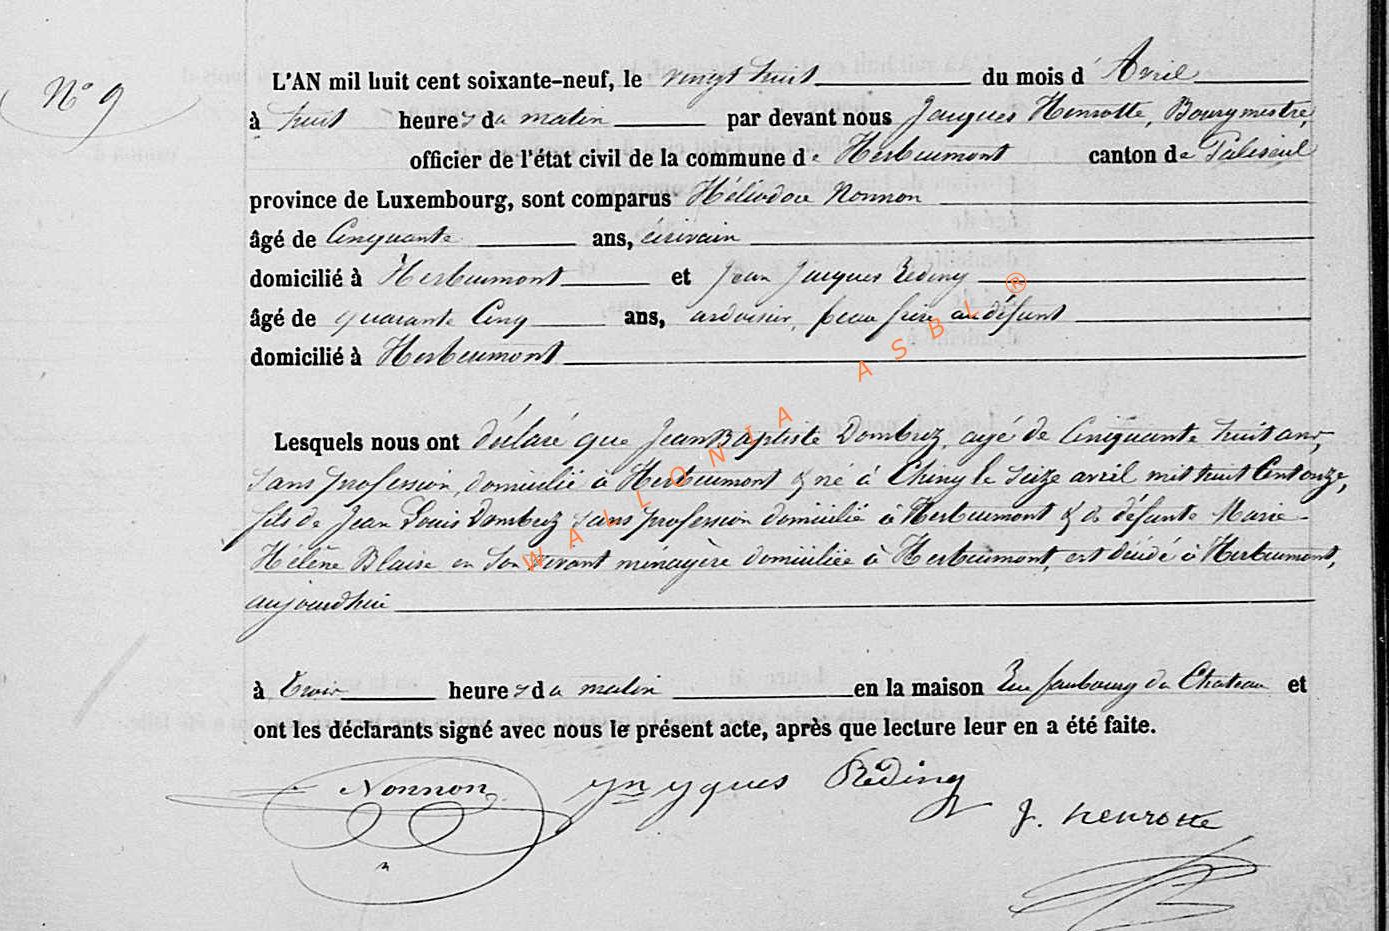 N° 9
L'AN mil huit cent soixante-neuf, le vingt huit du mois d'Avril
à huit heures du matin par devant nous Jacques Henrotte, Bourgmestre,
officier de l'état civil de la commune de Herbeumont canton de Paliseul
province de Luxembourg, sont comparus Héliodore Nonnon
âgé de Cinquante ans, écrivain
domicilié à Herbeumont et Jean Jacques Reding
âgé de quarante Cinq ans, ardoisier, beau frère au défunt
domicilié à Herbeumont
Lesquels nous ont déclaré que Jean Baptiste Dombuz, agé de Cinquante huit ans,
sans profession, domicilié à Herbeumont & né à Chiny le Seize avril mil huit Cent onze,
fils de Jean Louis Dombuz sans profession domicilié à Herbeumont & de défunte Marie-
Hélène Blaise en Son vivant ménagère domiciliée à Herbeumont, est décédé à Herbeumont,
aujourdhui
à Trois heures du matin en la maison Rue faubourg du Chateau et
ont les déclarants signé avec nous le présent acte, après que lecture leur en a été faite.
Nonnon Jn yques Réding
J. henrotte
WALLONIA ASBL ®